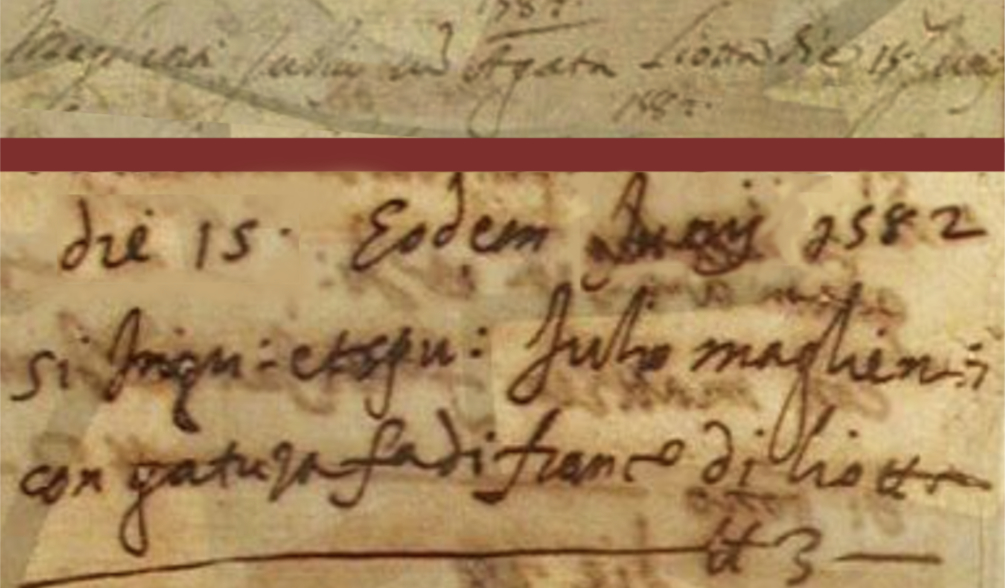 1582.
Maglieri Julio cu Agata Liotta die 15 Junij
1582.
die 15. Eodem Junij 1582
si inqu: et spu: Julio maglieri:
con gatuza fa di franco di liotta
tt 3